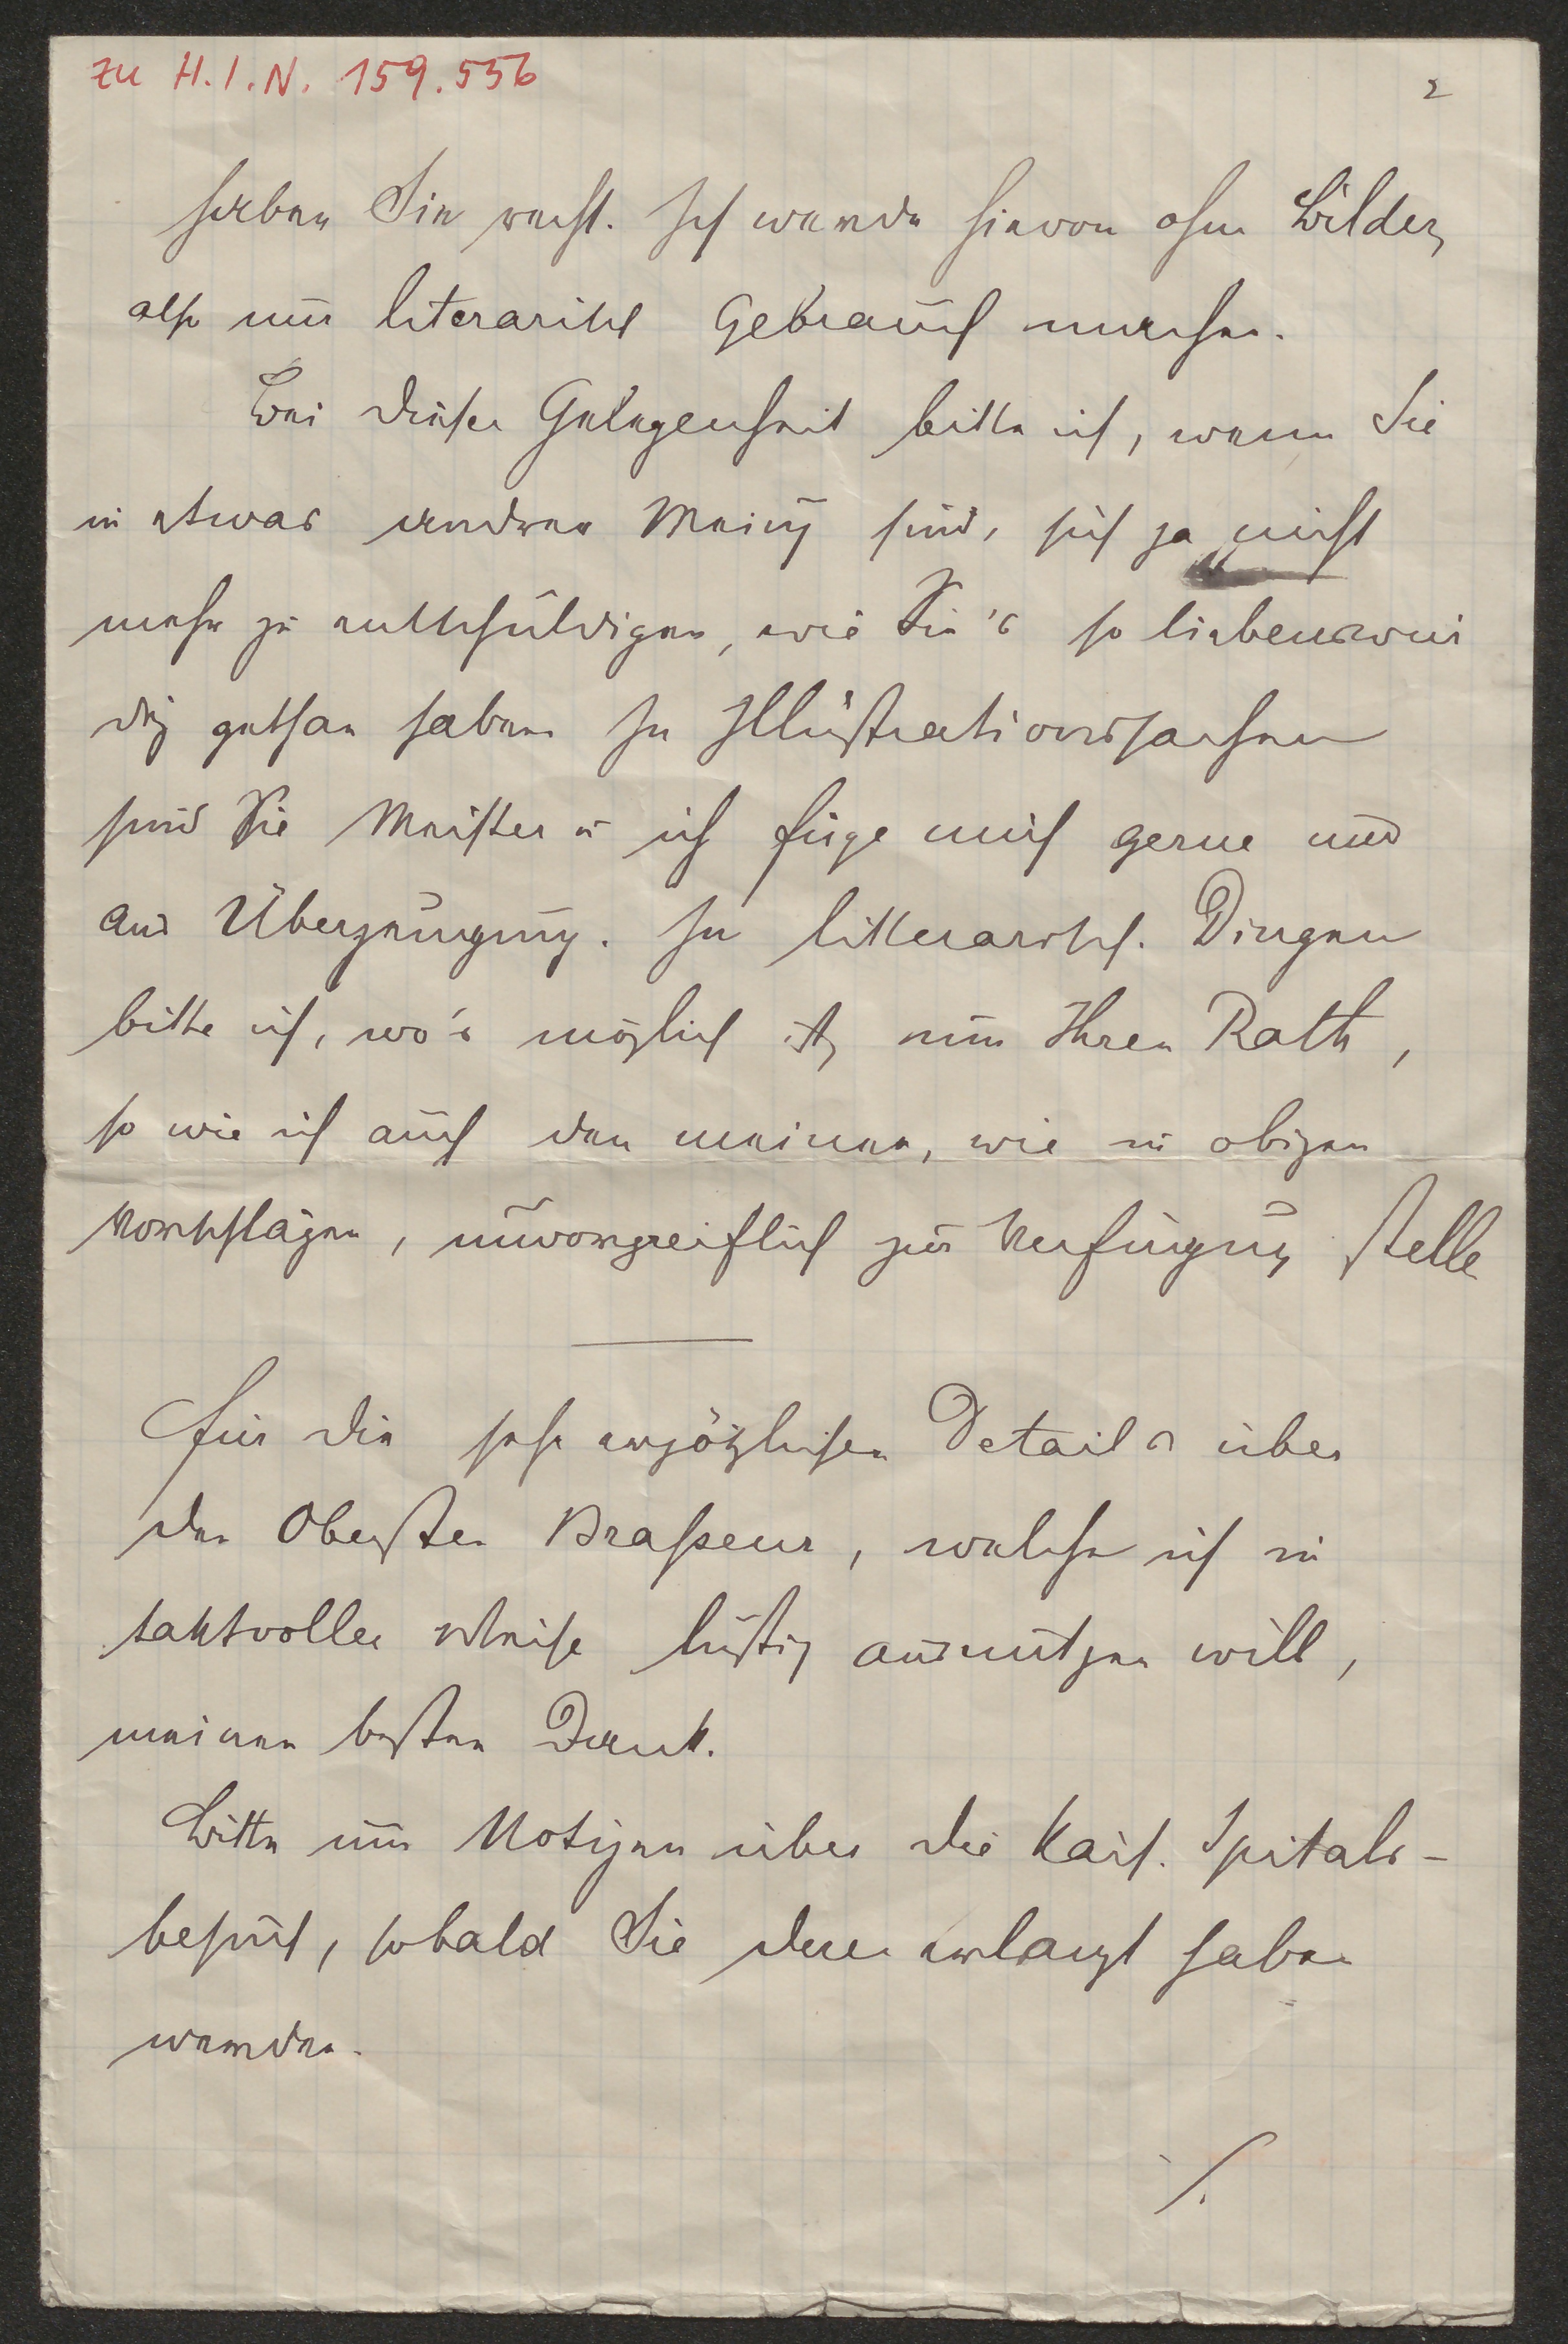 zu H.I.N. 159.556
2
haben Sie recht. Ich werde hievon ohne Bilder,
also nur literarisch Gebrauch machen.
Bei dieser Gelegenheit bitte ich, wenn Sie
in etwas andrer Meing sind, sich ja nicht
mehr zu entschuldigen, wie Sie's so liebenswür
dig gethan haben. In Illustrationssachen
sind Sie Meister u ich füge mich gerne und
aus Überzeugung. In litterarisch. Dingen
bitte ich, wo's möglich ist, um Ihren Rath,
so wie ich auch den meinen, wie in obigen
Vorschlägen, unvorgreiflich zur Verfügung stelle
Für die sehr ergötzlichen Details über
den Obersten Brasseur, welche ich in
taktvoller Weise lustig ausnützen will,
meinen besten Dank.
Bitte um Notizen über die Kais. Spitals-
besuch, sobald Sie deren erlangt haben
werden.
/.